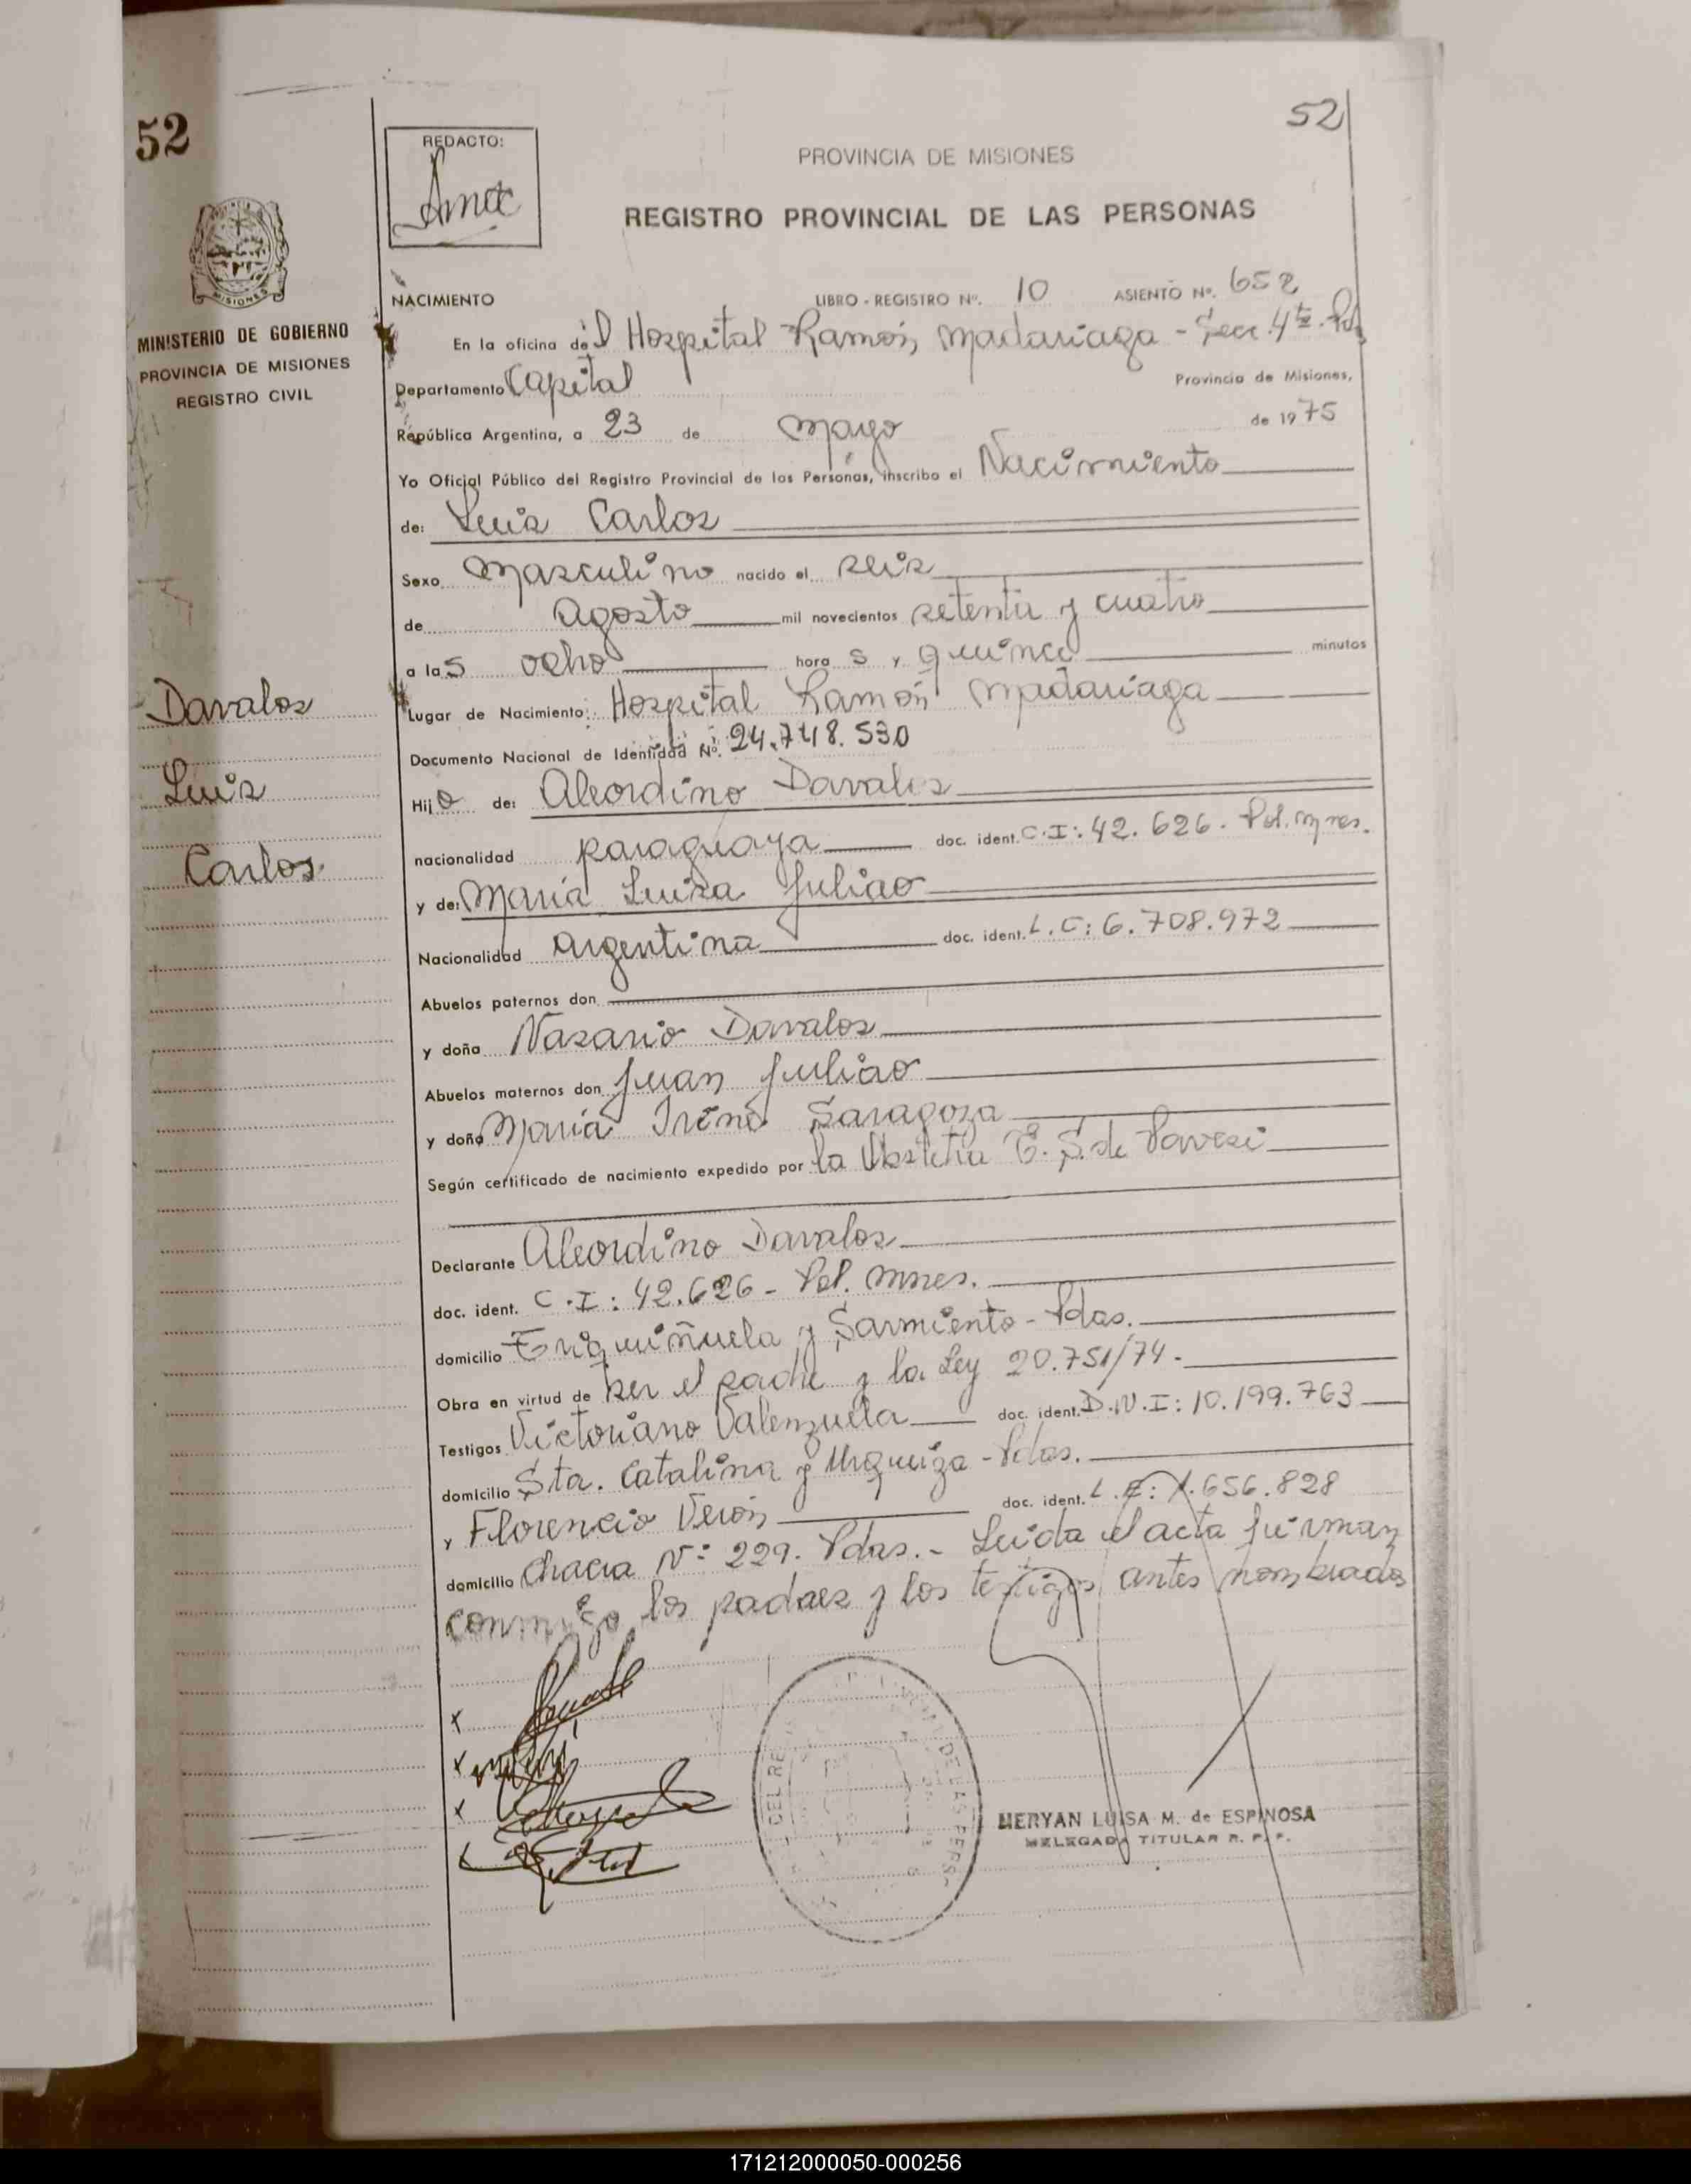 52
52
REDACTO:
PROVINCIA DE MISIONES
REGISTRO PROVINCIAL DE LAS PERSONAS
MINISTERIO DE GOBIERNO
PROVINCIA DE MISIONES
REGISTRO CIVIL
Davalos
Luis
Carlos
NACIMIENTO LIBRO - REGISTRO Nº. 10 ASIENTO Nº. 652
En la oficina del Hospital Ramón Madariaga - Secc. 4ta. Pdas
Departamento Capital Provincia de Misiones,
República Argentina, a 23 de Mayo de 1975
Yo Oficial Público del Registro Provincial de las Personas, inscribo el Nacimiento
de: Luis Carlos
Sexo Masculino nacido el seis
de agosto mil novecientos setenta y cuatro
a las ocho horas y quince minutos
Lugar de Nacimiento: Hospital Ramón Madariaga
Documento Nacional de Identidad Nº. 24.748.530
Hijo de: Aleordino Davalos
nacionalidad paraguaya doc. ident. C.I: 42.626. Pol. Mnes.
y de: María Luisa Juliao
Nacionalidad argentina doc. ident. L.C: 6.708.972
Abuelos paternos don
y doña Nazario Davalos
Abuelos maternos don Juan Juliao
y doña María Irene Saragoza
Según certificado de nacimiento expedido por la Obstetra E. S. de Pavesi
Declarante Aleordino Davalos
doc. ident. C.I: 42.626 - Pol. Mnes.
domicilio Eriquiñuela y Sarmiento - Pdas.
Obra en virtud de ser el padre y la Ley 20.751/74.
Testigos Victoriano Valenzuela doc. ident. D.N.I: 10.199.763
domicilio Sta. Catalina y Urquiza - Pdas.
y Florencio Verón doc. ident. L.E: 1.656.828
domicilio Chacra Nº 229. Pdas. - Leida el acta firman
conmigo los padres y los testigos antes nombrados
x
x
x
MERYAN LUISA M. de ESPINOSA
DELEGADA TITULAR R. P. P.
171212000050-000256